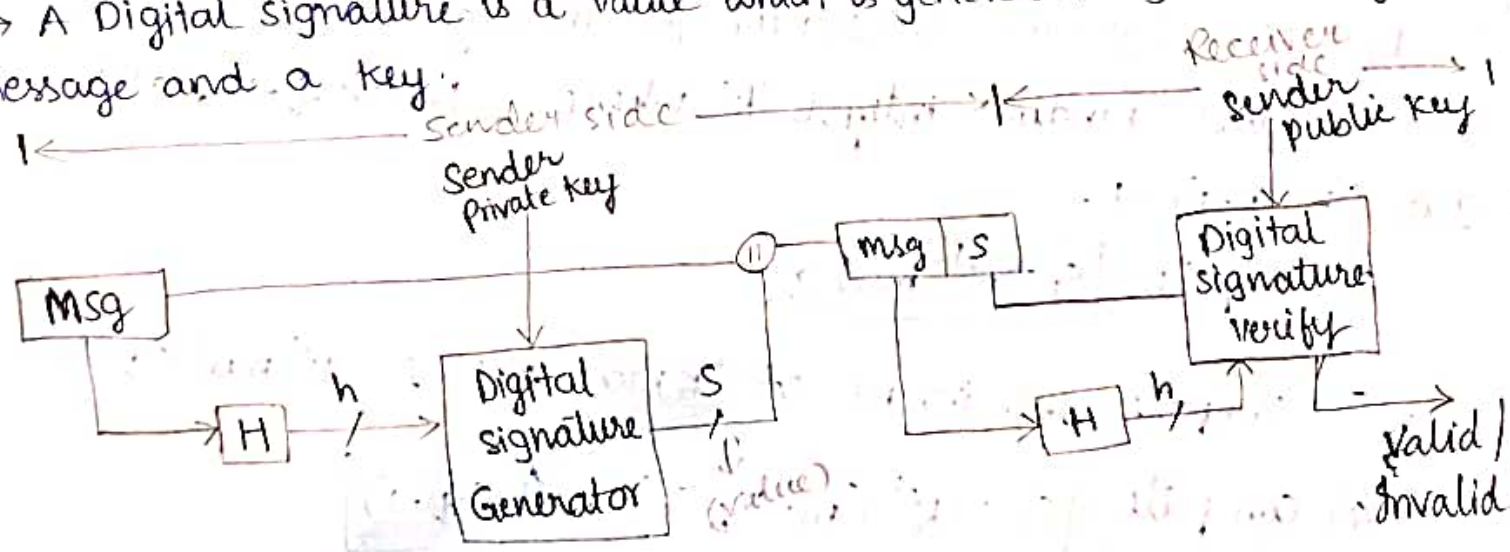 → A Digital signature is a value which is
essage and a key.
Sender side
Receiver
side
Sender
Private key
Sender
public key
Msg
H
h
Digital
signature
Generator
S
(value)
||
msg | S
H
h
Digital
signature
verify
Valid/
Invalid